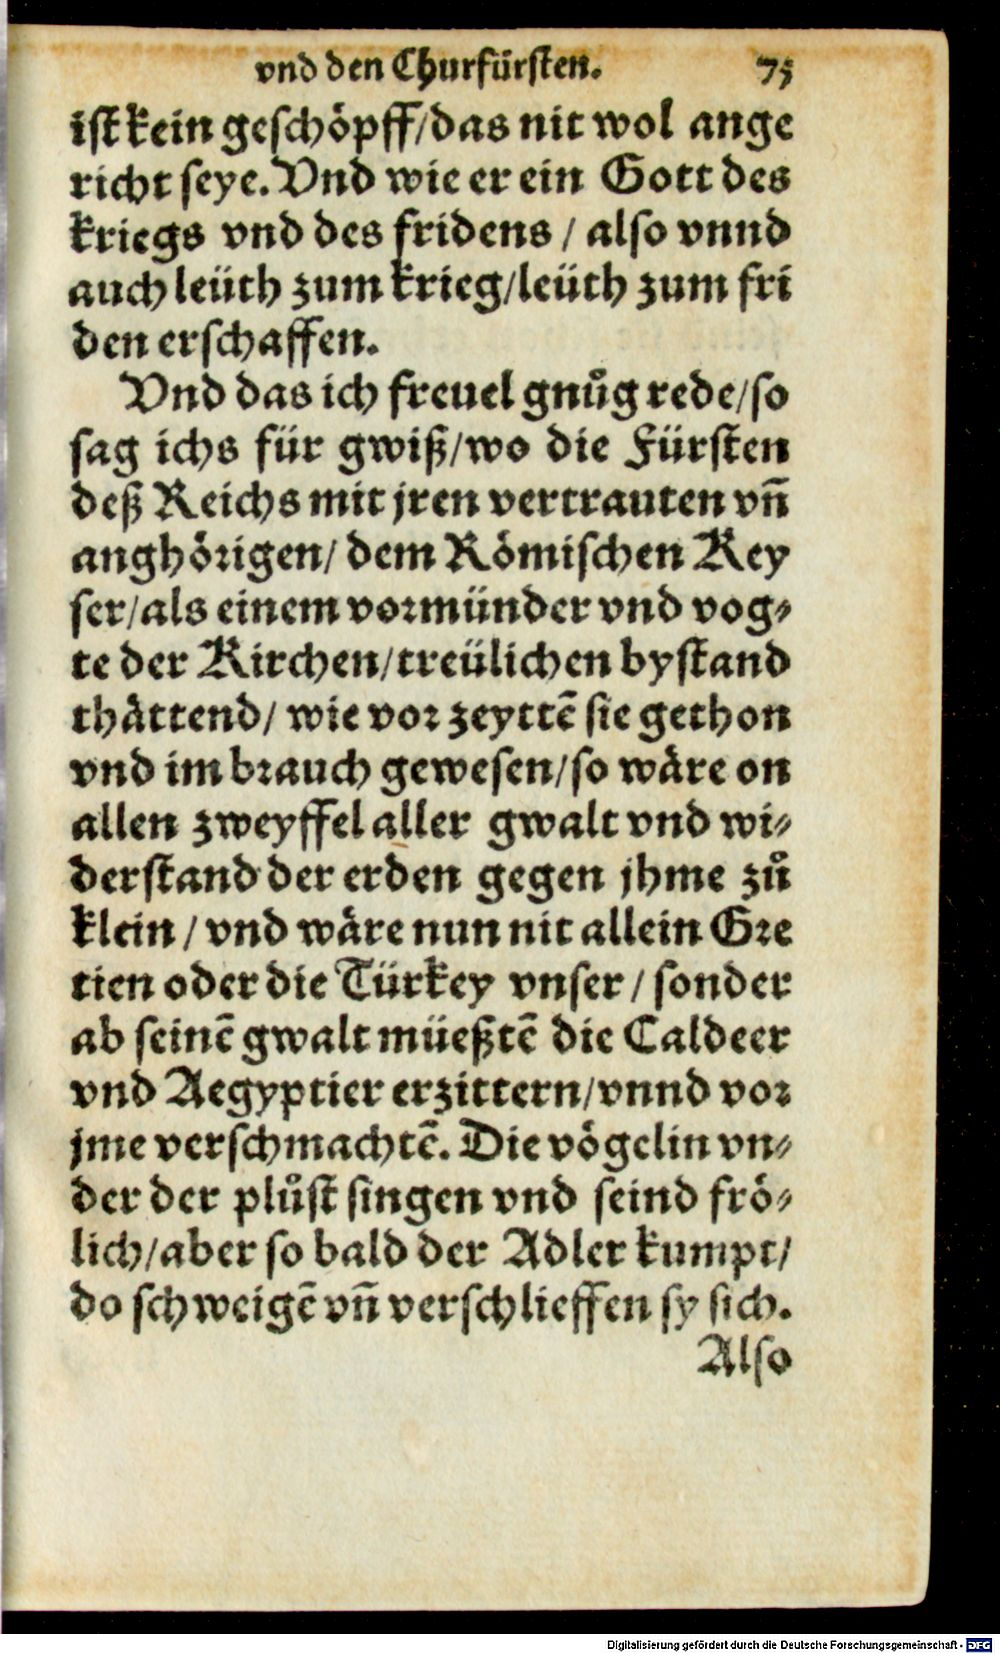 vnd den Churfürsten. 75
ist kein geschöpff/das nit wol ange
richt seye. Vnd wie er ein Gott des
kriegs vnd des fridens / also vnnd
auch leüth zum krieg/leüth zum fri
den erschaffen.
Vnd das ich freuel gnůg rede/so
sag ichs für gwiß/wo die Fürsten
deß Reichs mit jren vertrauten vñ
anghörigen/ dem Römischen Key
ser/als einem vormünder vnd vog-
te der Kirchen/treülichen bystand
thättend/ wie vor zeyttē sie gethon
vnd im brauch gewesen/so wäre on
allen zweyffel aller gwalt vnd wi-
derstand der erden gegen jhme zů
klein / vnd wäre nun nit allein Gre
tien oder die Türkey vnser / sonder
ab seinē gwalt müeßtē die Caldeer
vnd Aegyptier erzittern/vnnd vor
jme verschmachtē. Die vögelin vn-
der der plůst singen vnd seind frö-
lich/aber so bald der Adler kumpt/
do schweigē vñ verschlieffen sy sich.
Also
Digitalisierung gefördert durch die Deutsche Forschungsgemeinschaft - DFG